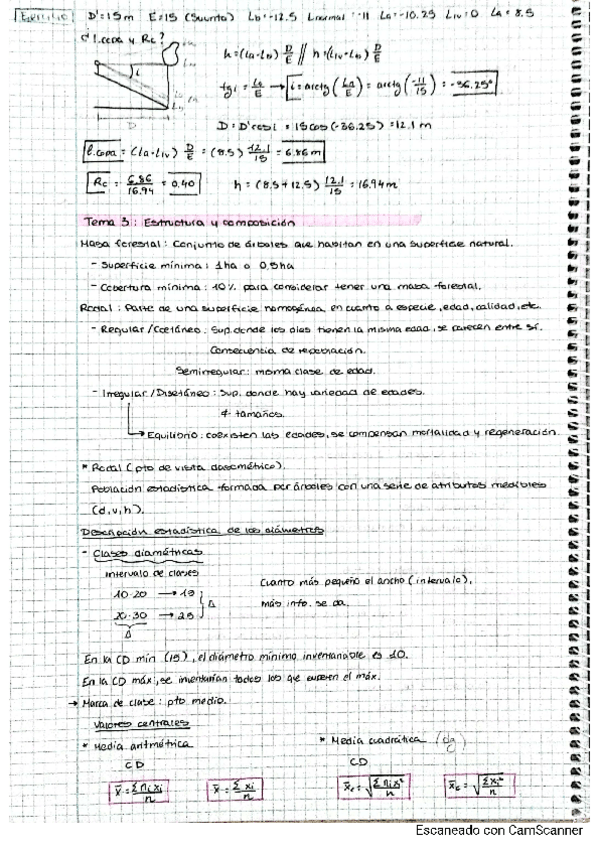 Ejercicio D'=15m E=15 (Suunto) Lb=-12.5 Lnormal=-11 La=-10.25 Liv=0 La=8.5
d l.copa y Rc?
h=(La-Lb) D/E // h=(Liv-Lb) D/E
tg i = La/E → i=arctg(La/E) = arctg(-11/15) = -36.25º
D = D'cos i = 15cos(-36.25) = 12.1 m
l.copa = (La-Liv) D/E = (8.5) 12.1/15 = 6.86 m
Rc = 6.86/16.94 = 0.40 h = (8.5+12.5) 12.1/15 = 16.94 m
Tema 3: Estructura y composición
Masa forestal: Conjunto de árboles que habitan en una superficie natural.
- Superficie mínima: 1ha o 0,5ha
- Cobertura mínima: 10% para considerar tener una masa forestal.
Rodal: Parte de una superficie homogénea en cuanto a especie, edad, calidad, etc.
- Regular/Coetáneo: Sup. donde los pies tienen la misma edad, se parecen entre sí.
Consecuencia de repoblación.
Semirregular: misma clase de edad.
- Irregular/Disetáneo: Sup. donde hay variedad de edades.
≠ tamaños.
→ Equilibrio: coexisten las edades, se compensan mortalidad y regeneración.
* Rodal (pto de vista dasométrico).
Población estadística formada por árboles con una serie de atributos medibles
(d,v,h).
Descripción estadística de los diámetros
- Clases diamétricas
intervalo de clases
10-20 → 15
20-30 → 25
Δ
Δ
Cuanto más pequeño el ancho (intervalo),
más info. se da.
En la CD mín (15), el diámetro mínimo inventariable es 10.
En la CD máx, se inventarían todos los que superen el máx.
→ Marca de clase: pto medio.
Valores centrales
* Media aritmética * Media cuadrática (dg)
CD CD
x̄ = Σni xi/n x̄ = Σxi/n x̄c = √(Σni xi²/n) x̄c = √(Σxi²/n)
Escaneado con CamScanner